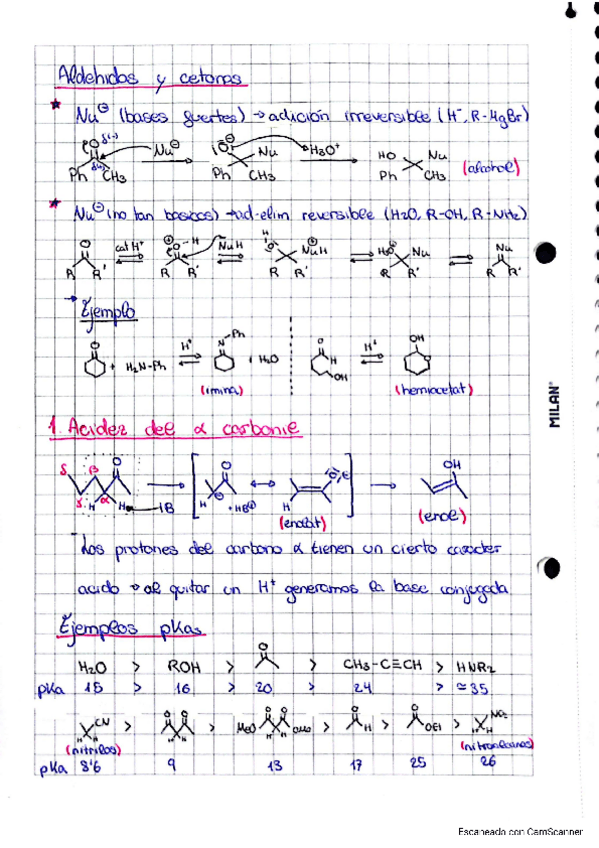 Aldehidos y cetonas
* Nu⊖ (bases fuertes) → adición irreversible (H⁻, R-MgBr)
O δ(-) Nu⊖ O⊖ Nu H3O⁺ HO Nu
Ph δ(+) CH3 Ph CH3 Ph CH3 (alcohol)
* Nu⊖ (no tan basicos) → ad-elim reversible (H2O, R-OH, R-NH2)
O cat H⁺ ⊕O-H NuH H O ⊕NuH H2O⊕ Nu Nu
R R' R R' R R' R R' R R'
→ Ejemplo
O + H2N-Ph H⁺ N-Ph + H2O O H OH H⁺ OH O
(imina) (hemiacetal)
1. Acidez del α carbonilo
δ β O O O⊖ OH
γ H α H B + HB⊕ H
(enolat) (enol)
- Los protones del carbono α tienen un cierto caracter
acido → al quitar un H⁺ generamos la base conjugada
Ejemplos pKas
H2O > ROH > O > CH3-C≡CH > HNR2
pKa 15 > 16 > 20 > 24 > ≃35
CN H H > O O H H > MeO O O OMe H H > O H > O OEt > NO2 H
(nitrilos) (nitroalcanos)
pKa 8'6 9 13 17 25 26
MILAN
Escaneado con CamScanner